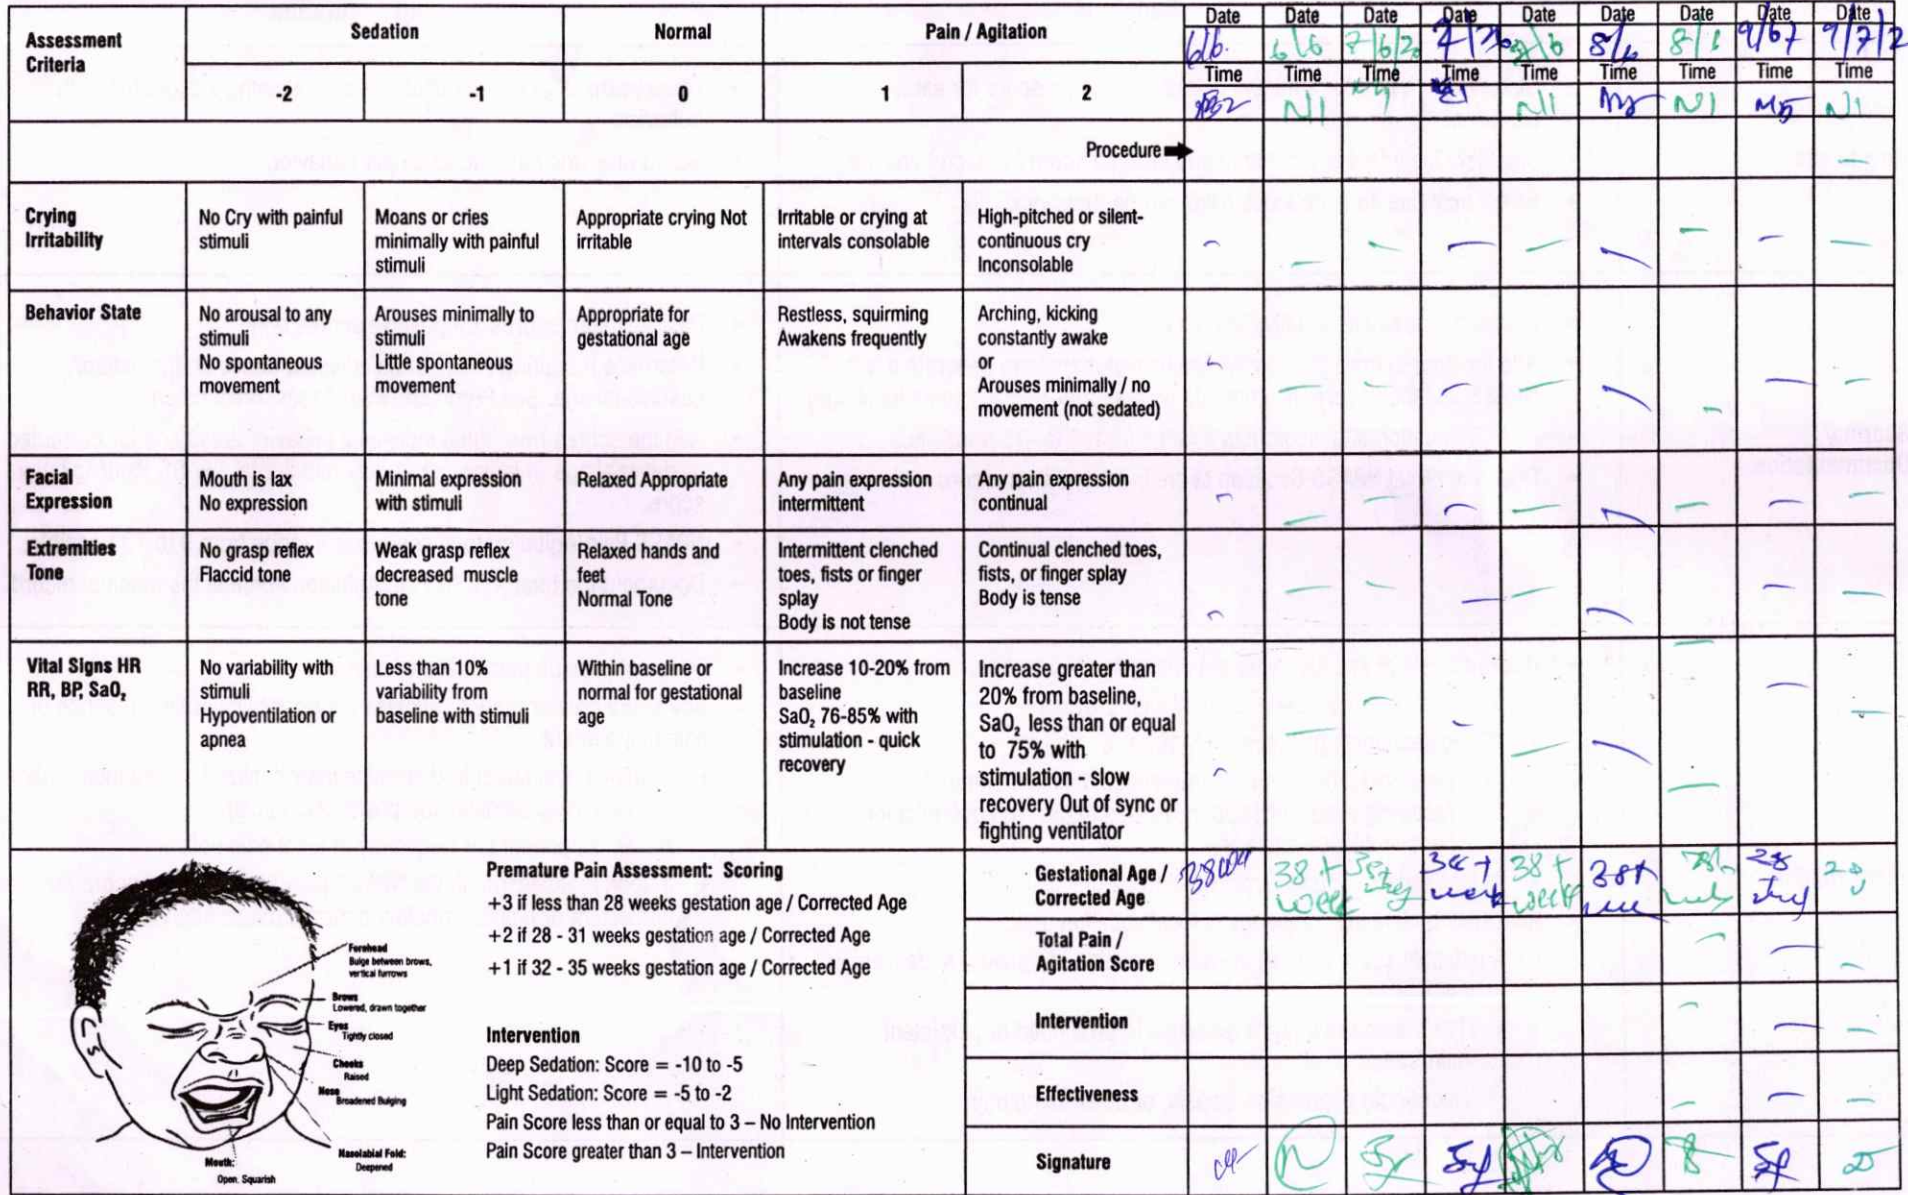 Assessment Criteria
Sedation
Normal
Pain / Agitation
Date Date Date Date Date Date Date Date Date
6/6. 6/6 7/6/20 8/6
-2 -1 0 1 2
Time Time Time Time Time Time Time Time Time
N1 N1 N1 N1
Procedure
Crying
Irritability
No Cry with painful
stimuli
Moans or cries
minimally with painful
stimuli
Appropriate crying Not
irritable
Irritable or crying at
intervals consolable
High-pitched or silent-
continuous cry
Inconsolable
Behavior State
No arousal to any
stimuli
No spontaneous
movement
Arouses minimally to
stimuli
Little spontaneous
movement
Appropriate for
gestational age
Restless, squirming
Awakens frequently
Arching, kicking
constantly awake
or
Arouses minimally / no
movement (not sedated)
Facial
Expression
Mouth is lax
No expression
Minimal expression
with stimuli
Relaxed Appropriate
Any pain expression
intermittent
Any pain expression
continual
Extremities
Tone
No grasp reflex
Flaccid tone
Weak grasp reflex
decreased muscle
tone
Relaxed hands and
feet
Normal Tone
Intermittent clenched
toes, fists or finger
splay
Body is not tense
Continual clenched toes,
fists, or finger splay
Body is tense
Vital Signs HR
RR, BP, SaO₂
No variability with
stimuli
Hypoventilation or
apnea
Less than 10%
variability from
baseline with stimuli
Within baseline or
normal for gestational
age
Increase 10-20% from
baseline
SaO₂ 76-85% with
stimulation - quick
recovery
Increase greater than
20% from baseline,
SaO₂ less than or equal
to 75% with
stimulation - slow
recovery Out of sync or
fighting ventilator
Forehead
Bulge between brows,
vertical furrows
Brows
Lowered, drawn together
Eyes
Tightly closed
Cheeks
Raised
Nose
Broadened Bulging
Nasolabial Fold:
Deepened
Mouth:
Open, Squarish
Premature Pain Assessment: Scoring
+3 if less than 28 weeks gestation age / Corrected Age
+2 if 28 - 31 weeks gestation age / Corrected Age
+1 if 32 - 35 weeks gestation age / Corrected Age
Intervention
Deep Sedation: Score = -10 to -5
Light Sedation: Score = -5 to -2
Pain Score less than or equal to 3 – No Intervention
Pain Score greater than 3 – Intervention
Gestational Age /
Corrected Age
38+ week
38+ week
38+
Total Pain /
Agitation Score
Intervention
Effectiveness
Signature